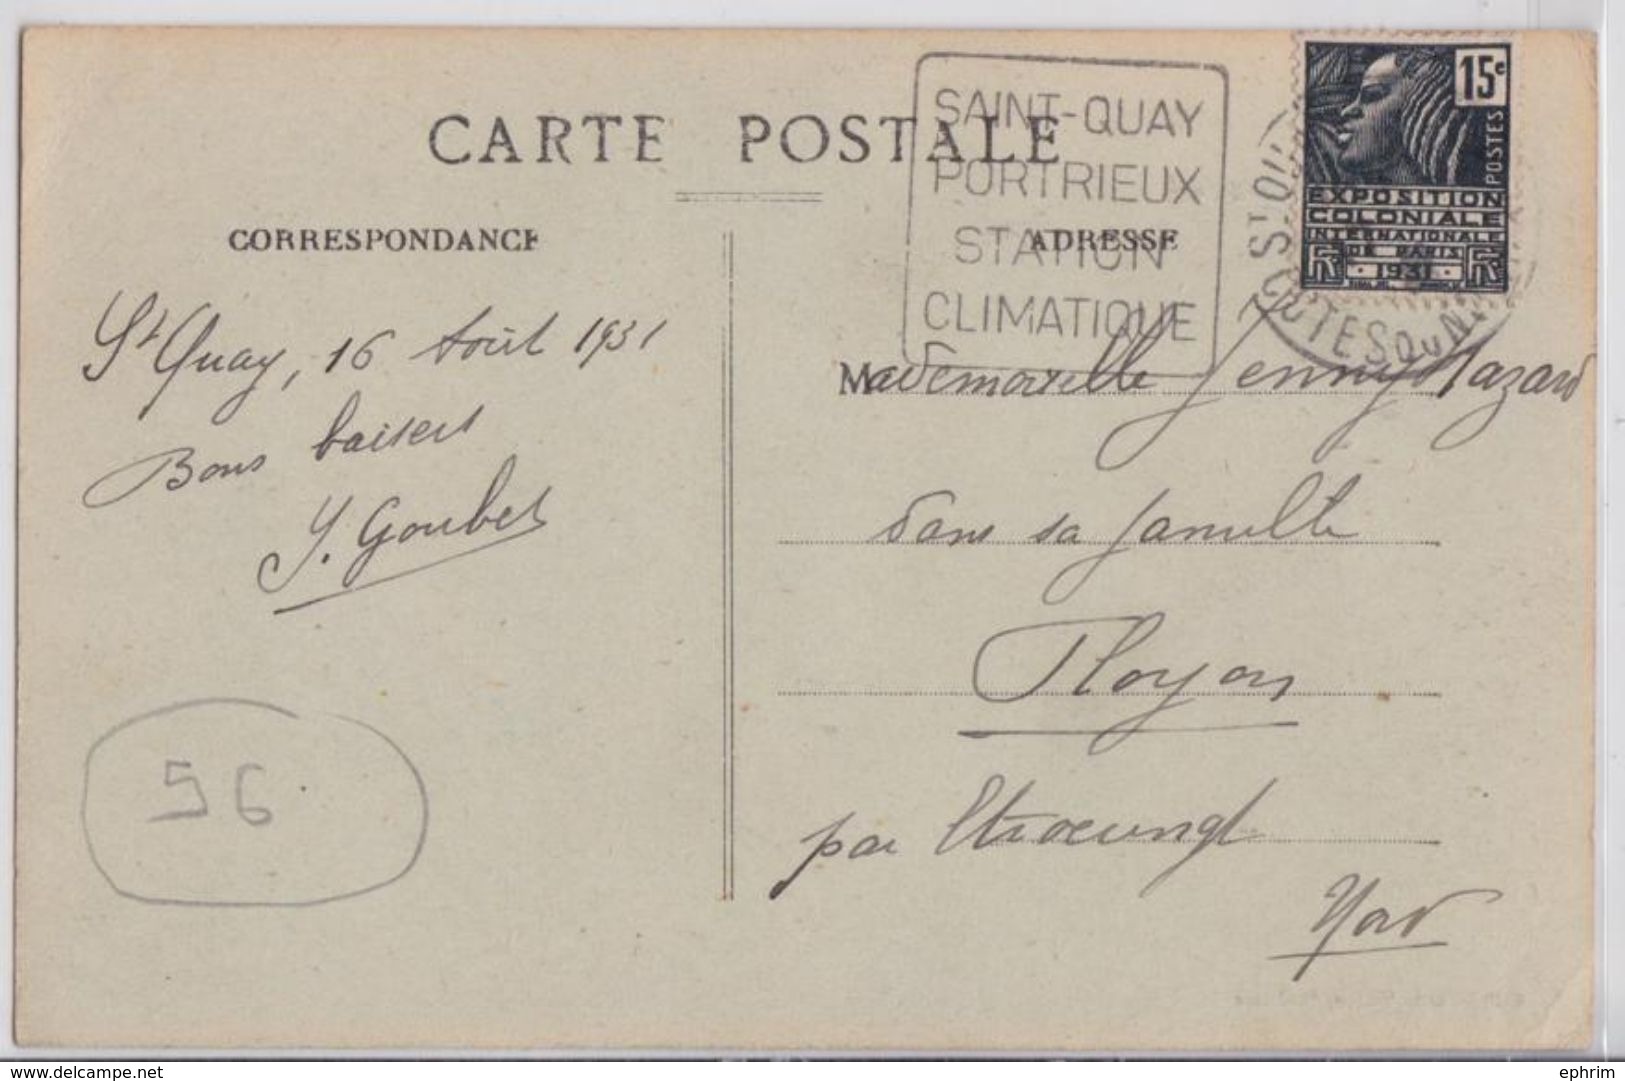 CARTE POSTALE
SAINT-QUAY
PORTRIEUX
STATION
CLIMATIQUE
ST QU
CÔTES DU N
15c
POSTES
EXPOSITION
COLONIALE
INTERNATIONALE
DE PARIS
RF 1931 RF
CORRESPONDANCE
St Quay, 16 Août 1931
Bons baisers
Y. Goubet
56
ADRESSE
Mademoiselle Jenny Hazard
dans sa famille
Floyon
par Etroeungt
Nord
delcampe.net
ephrim